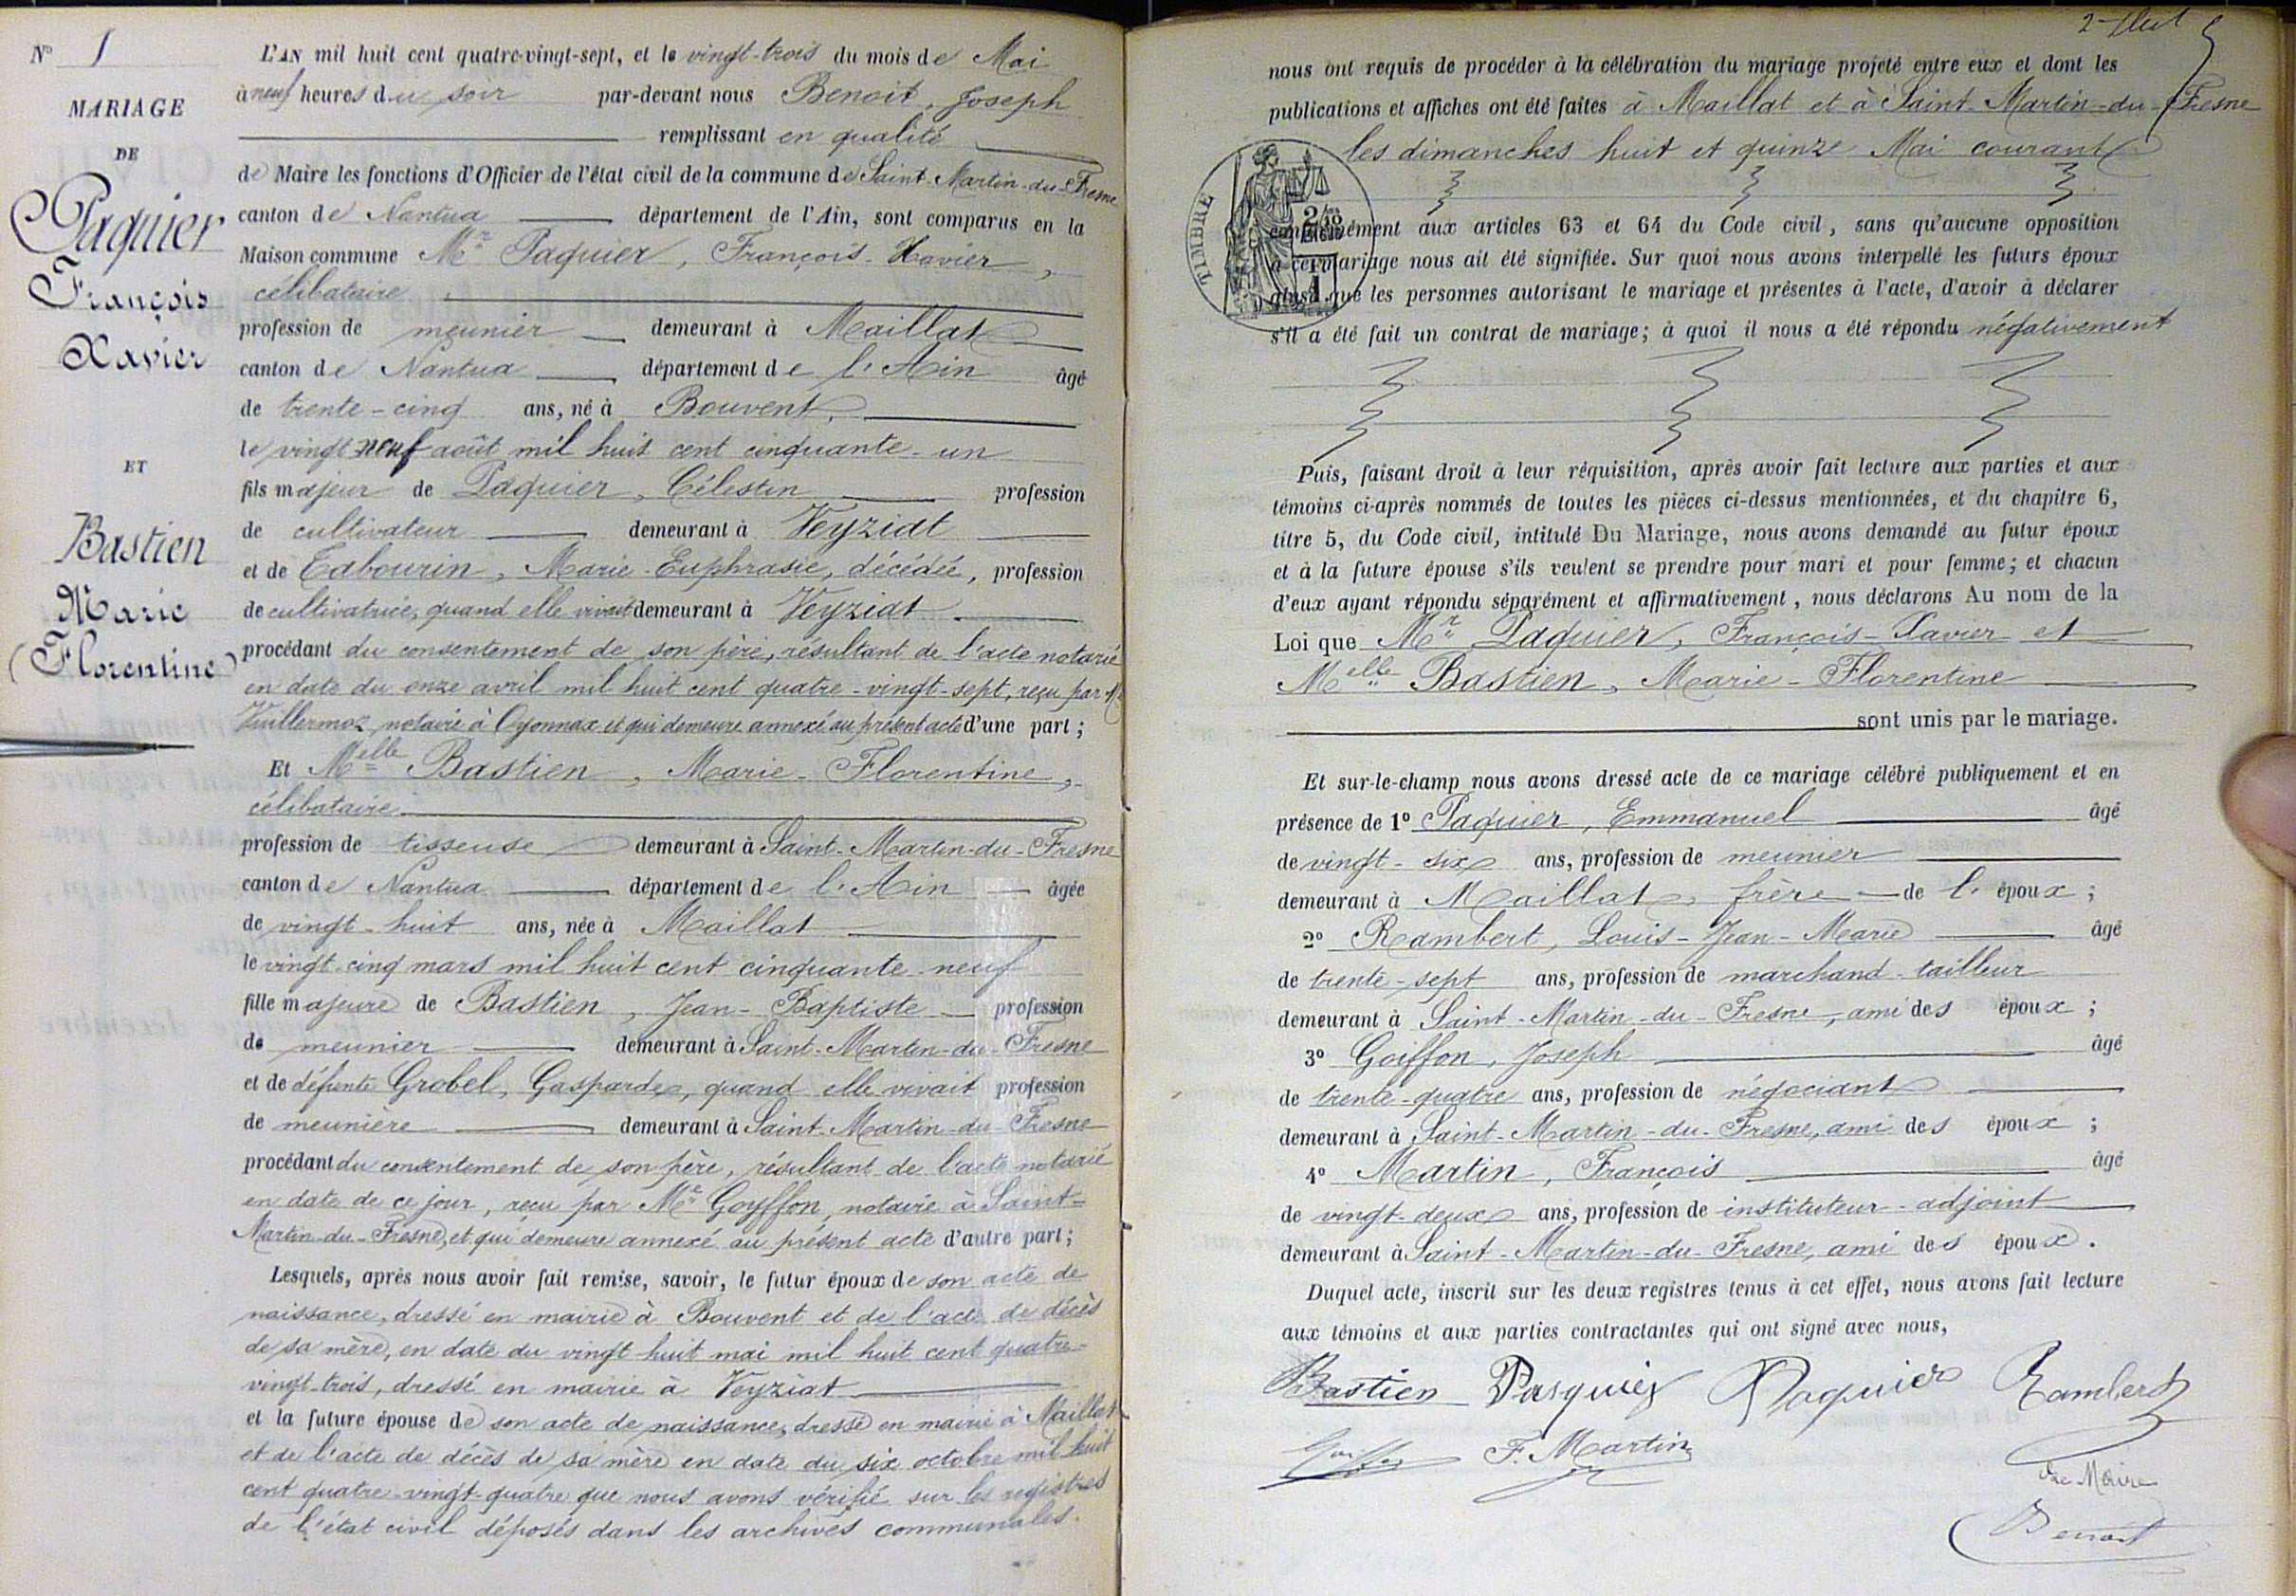 N° 1
MARIAGE
DE
Paquier
François
Xavier
ET
Bastien
Marie
(Florentine)
L'AN mil huit cent quatre-vingt-sept, et le vingt-trois du mois de Mai
à neuf heures du soir par-devant nous Benoit, Joseph
remplissant en qualité
de Maire les fonctions d'Officier de l'état civil de la commune de Saint-Martin-du-Fresne
canton de Nantua département de l'Ain, sont comparus en la
Maison commune Mr Paquier, François-Xavier,
célibataire
profession de meunier demeurant à Maillat
canton de Nantua département de l'Ain âgé
de trente-cinq ans, né à Bouvent,
le vingt neuf août mil huit cent cinquante-un
fils majeur de Paquier, Célestin profession
de cultivateur demeurant à Veyziat
et de Tabourin, Marie-Euphrasie, décédée, profession
de cultivatrice, quand elle vivait demeurant à Veyziat
procédant du consentement de son père, résultant de l'acte notarié
en date du onze avril mil huit cent quatre-vingt-sept, reçu par Me
Vuillermoz, notaire à Oyonnax et qui demeure annexé au présent acte d'une part;
Et Melle Bastien, Marie-Florentine,
célibataire
profession de tisseuse demeurant à Saint-Martin-du-Fresne
canton de Nantua département de l'Ain âgée
de vingt-huit ans, née à Maillat
le vingt-cinq mars mil huit cent cinquante-neuf
fille majeure de Bastien, Jean-Baptiste profession
de meunier demeurant à Saint-Martin-du-Fresne
et de défunte Grobel, Gasparde, quand elle vivait profession
de meunière demeurant à Saint-Martin-du-Fresne
procédant du consentement de son père, résultant de l'acte notarié
en date de ce jour, reçu par Me Goyffon, notaire à Saint-
Martin-du-Fresne, et qui demeure annexé au présent acte d'autre part;
Lesquels, après nous avoir fait remise, savoir, le futur époux de son acte de
naissance, dressé en mairie à Bouvent et de l'acte de décès
de sa mère, en date du vingt huit mai mil huit cent quatre-
vingt-trois, dressé en mairie à Veyziat
et la future épouse de son acte de naissance, dressé en mairie à Maillat
et de l'acte de décès de sa mère en date du six octobre mil huit
cent quatre-vingt-quatre que nous avons vérifié sur les registres
de l'état civil déposés dans les archives communales.
nous ont requis de procéder à la célébration du mariage projeté entre eux et dont les
publications et affiches ont été faites à Maillat et à Saint-Martin-du-Fresne
les dimanches huit et quinze Mai courant
TIMBRE
conformément aux articles 63 et 64 du Code civil, sans qu'aucune opposition
à ce mariage nous ait été signifiée. Sur quoi nous avons interpellé les futurs époux
ainsi que les personnes autorisant le mariage et présentes à l'acte, d'avoir à déclarer
s'il a été fait un contrat de mariage; à quoi il nous a été répondu négativement
Puis, faisant droit à leur réquisition, après avoir fait lecture aux parties et aux
témoins ci-après nommés de toutes les pièces ci-dessus mentionnées, et du chapitre 6,
titre 5, du Code civil, intitulé Du Mariage, nous avons demandé au futur époux
et à la future épouse s'ils veulent se prendre pour mari et pour femme; et chacun
d'eux ayant répondu séparément et affirmativement, nous déclarons Au nom de la
Loi que Mr Paquier, François-Xavier et
Melle Bastien, Marie-Florentine
sont unis par le mariage.
Et sur-le-champ nous avons dressé acte de ce mariage célébré publiquement et en
présence de 1° Paquier, Emmanuel âgé
de vingt-six ans, profession de meunier
demeurant à Maillat, frère de l'époux;
2° Rambert, Louis-Jean-Marie âgé
de trente-sept ans, profession de marchand-tailleur
demeurant à Saint-Martin-du-Fresne, ami des époux;
3° Goiffon, Joseph âgé
de trente-quatre ans, profession de négociant
demeurant à Saint-Martin-du-Fresne, ami des époux;
4° Martin, François âgé
de vingt-deux ans, profession de instituteur-adjoint
demeurant à Saint-Martin-du-Fresne, ami des époux.
Duquel acte, inscrit sur les deux registres tenus à cet effet, nous avons fait lecture
aux témoins et aux parties contractantes qui ont signé avec nous,
Bastien Pasquier Paquier Rambert
Goiffon F. Martin
Le Maire
Benoit